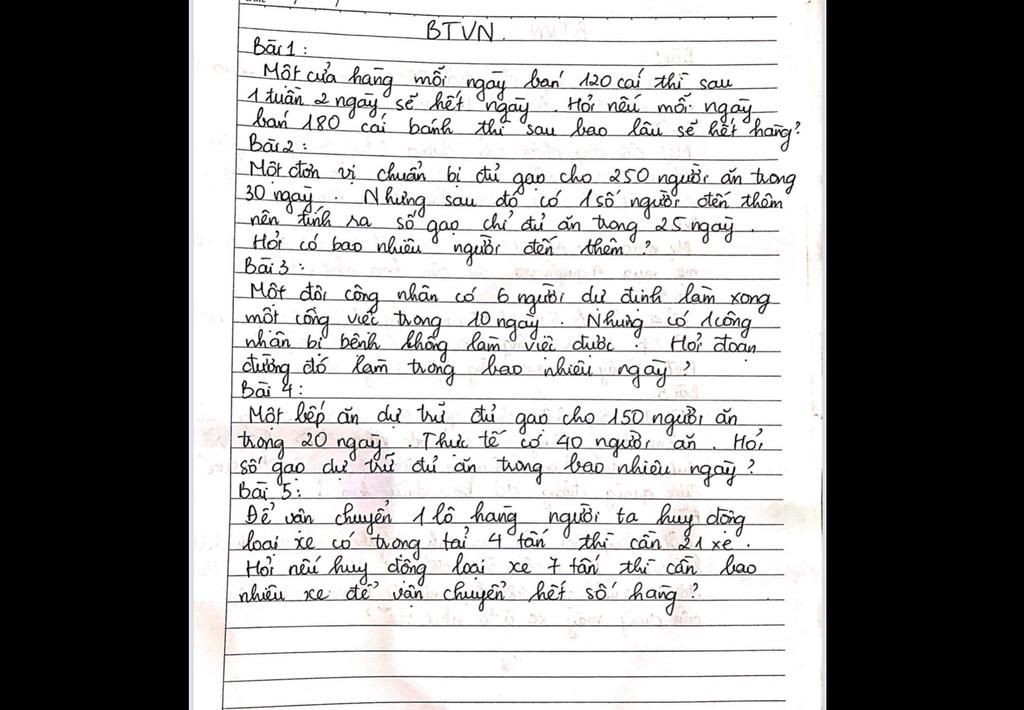 BTVN.
Bài 1:
Một cửa hàng mỗi ngày bán 120 cái thì sau
1 tuần 2 ngày sẽ hết ngày. Hỏi nếu mỗi ngày
bán 180 cái bánh thì sau bao lâu sẽ hết hàng?
Bài 2:
Một đơn vị chuẩn bị đủ gạo cho 250 người ăn trong
30 ngày. Nhưng sau đó có 1 số người đến thêm
nên tính ra số gạo chỉ đủ ăn trong 25 ngày.
Hỏi có bao nhiêu người đến thêm?
Bài 3:
Một đội công nhân có 6 người dự định làm xong
một công việc trong 10 ngày. Nhưng có 1 công
nhân bị bệnh không làm việc được. Hỏi đoạn
đường đó làm trong bao nhiêu ngày?
Bài 4:
Một bếp ăn dự trữ đủ gạo cho 150 người ăn
trong 20 ngày. Thực tế có 40 người ăn. Hỏi
số gạo dự trữ đủ ăn trong bao nhiêu ngày?
Bài 5:
Để vận chuyển 1 lô hàng người ta huy động
loại xe có trong tải 4 tấn thì cần 21 xe.
Hỏi nếu huy động loại xe 7 tấn thì cần bao
nhiêu xe để vận chuyển hết số hàng?